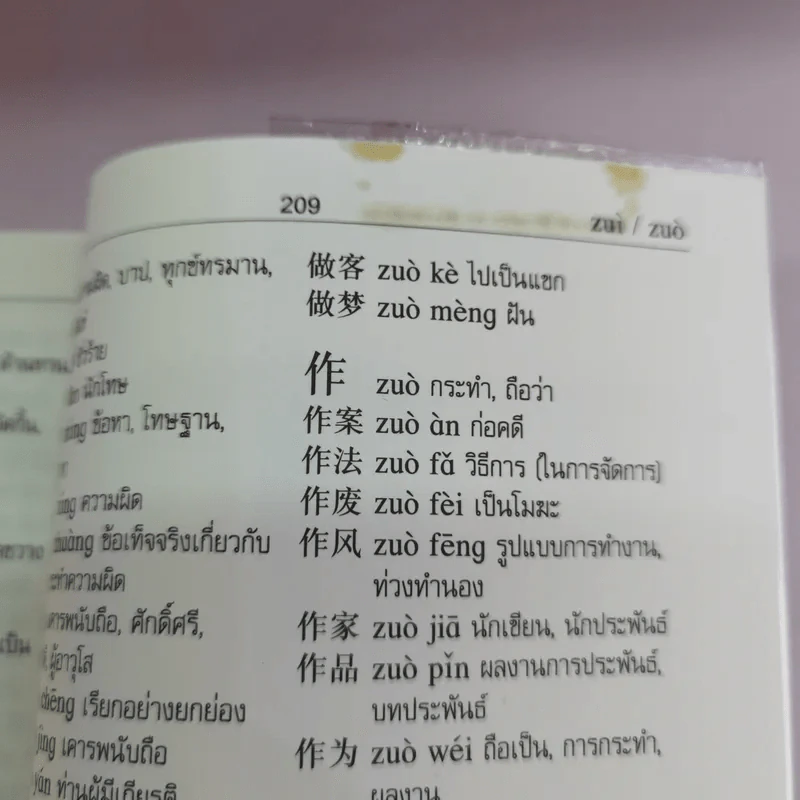 209
zuì / zuò
บาป, ทุกข์ทรมาน,
นักโทษ
ข้อหา, โทษฐาน,
ความผิด
ข้อเท็จจริงเกี่ยวกับ
ความผิด
ศักดิ์ศรี,
ผู้อาวุโส
chēng เรียกอย่างยกย่อง
jìng เคารพนับถือ
yán ท่านผู้มีเกียรติ
做客 zuò kè ไปเป็นแขก
做梦 zuò mèng ฝัน
作 zuò กระทำ, ถือว่า
作案 zuò àn ก่อคดี
作法 zuò fǎ วิธีการ (ในการจัดการ)
作废 zuò fèi เป็นโมฆะ
作风 zuò fēng รูปแบบการทำงาน,
ท่วงทำนอง
作家 zuò jiā นักเขียน, นักประพันธ์
作品 zuò pǐn ผลงานการประพันธ์,
บทประพันธ์
作为 zuò wéi ถือเป็น, การกระทำ,
ผลงาน